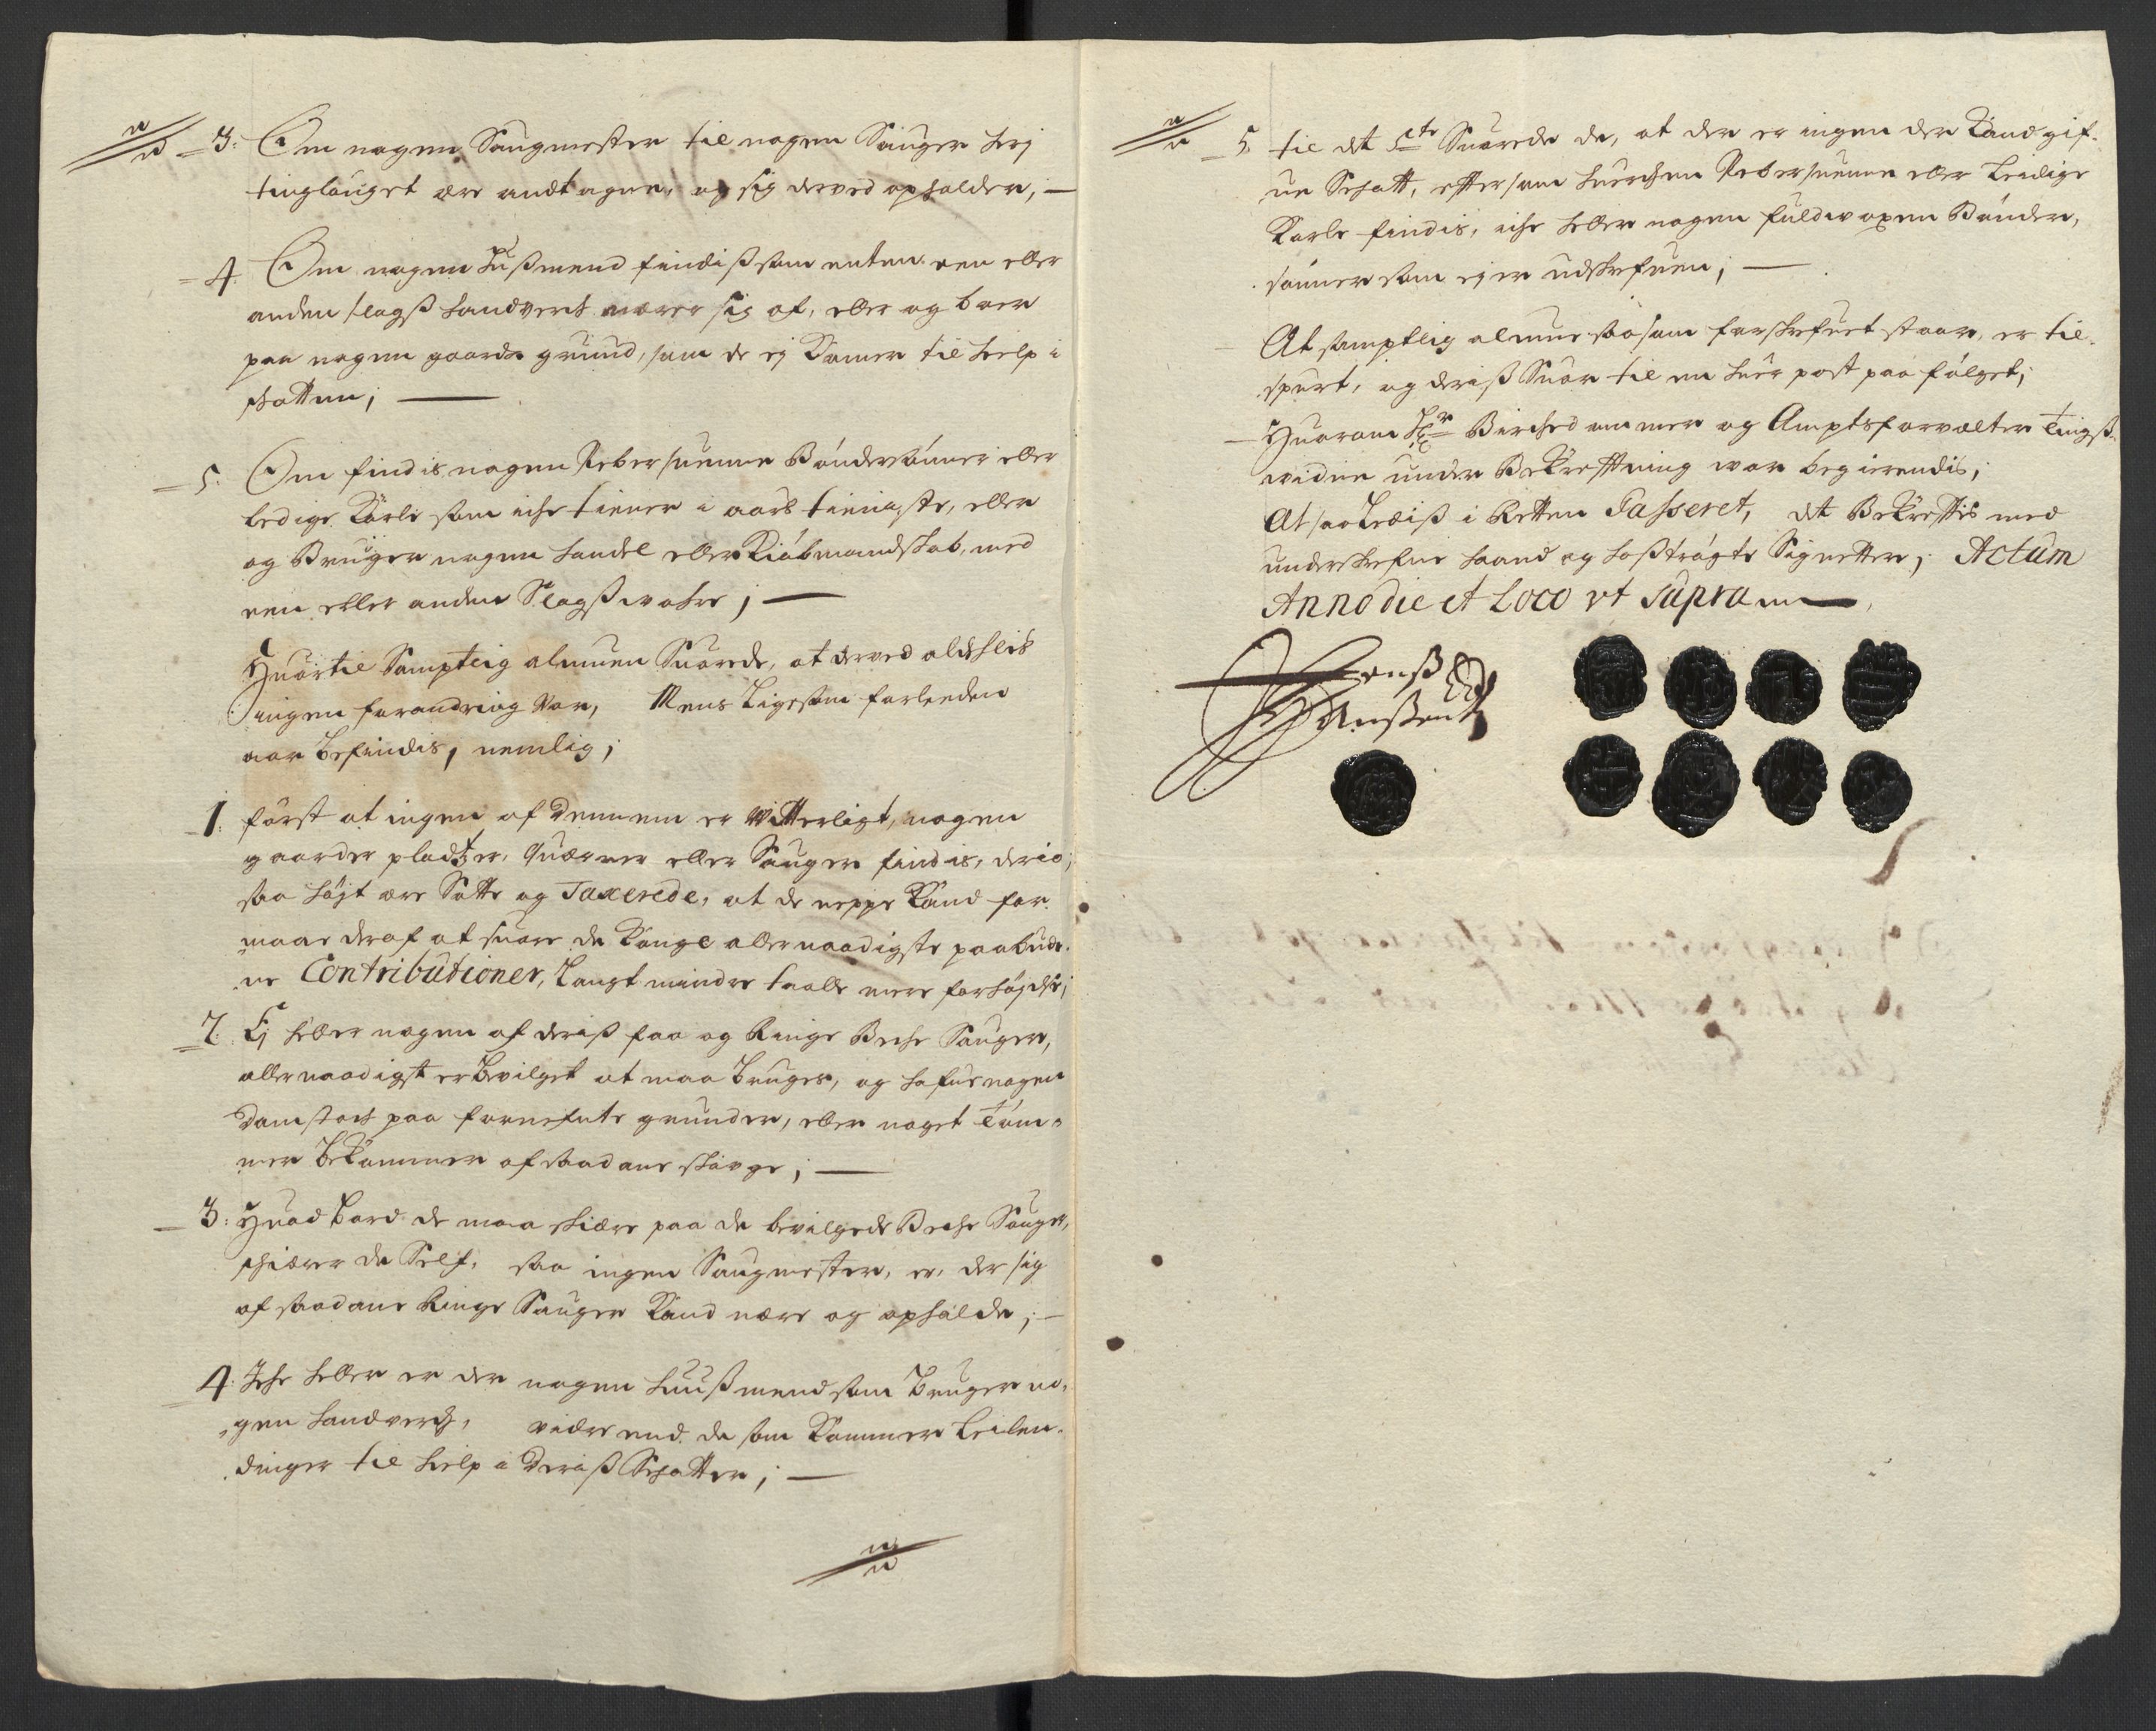 3: Om nogen Saugmester til nogen Sauger her j
tinglauget ere andtagne, og sig derved opholder;
4. Om nogen Hussmend findiss som enten een eller
anden slags handverk nærer sig af, eller og boer
paa nogen gaarde grund, som de ej Komer til hielp i
skatten;
5. Om findis nogen Rebersuenne Bøndersønner eller
ledige Karle som iche tiener i aars tienniste, eller
og Bruger nogen handel eller Kiøbmandskab, med
een eller anden Slagss wahre;
Huortil Samptlig almuen Suarede, at derved aldelis
ingen forandring Var, Mens Ligesom forleeden
aar Befindis, nemlig;
1: først at ingen af Dennem er Witterligt, nogen
gaarder pladtzer, Quærner eller Sauger findis, der io
saa højt ere Satte og Taxerede, at de neppe Kand for
maae deraf at suare de Konge allernaadigste paabud
ne Contributioner, Langt mindre taalle mere forhøjelse;
2. Ej heller nogen af deriss faa og Ringe Beche Sauger,
allernaadigst er Bevilget at maa Bruges, og hafue nogen
Damstoch paa fornefnte grunder, eller noget Tøm-
mer Bekommer af saadane skouge;
3: Huad Bord de maa skiære paa de bevilgede Beche Sauger,
skiærer de Self, saa ingen Saugmester, er, der sig
af saadane Ringe Sauger Kand nære og opholde;
4: Iche heller er der nogen huussmend som Bruger no-
gen handverch, vidre end de som Kommer Leilen-
dinger til hielp i Deriss Schatter;
5. til det 5te Suarede de, at der er ingen der Kand gif-
ue Schatt, eftersom huerchen Rebersuenne eller Leedige
Karle findis, iche heller nogen fuldwoxen Bønder,
sønner som ej er udskrefuen;
At samptlig almue saasom forskrefuet staar, er til-
spurt, og deriss Suar til en huer post paa fulget;
Huorom Hr Birchedommer og Amptsforvalter Tingss-
widne under Bekreftning war begierendis;
At saaledis i Retten Passeret, det Bekreftis med
underskrefne haand og hosstrøgte Signetter; Actum
Anno die et Loco ut supra
Jenss
Hanssen